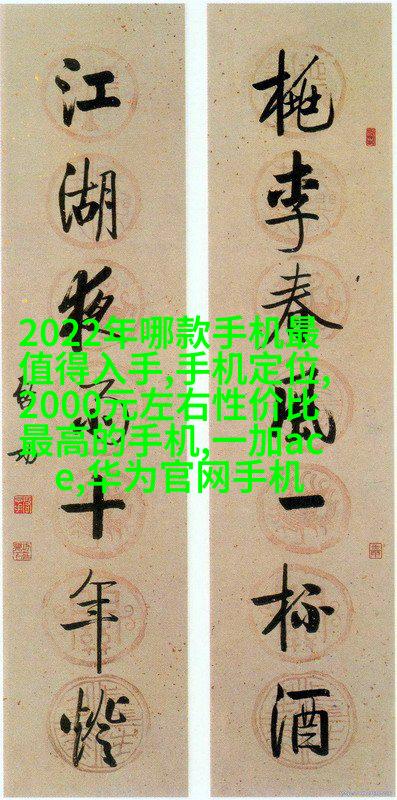 桃李春風一杯酒
江湖夜雨十年燈
啟功
2022年哪款手机最
值得入手,手机定位,
2000元左右性价比
最高的手机,一加ac
e,华为官网手机